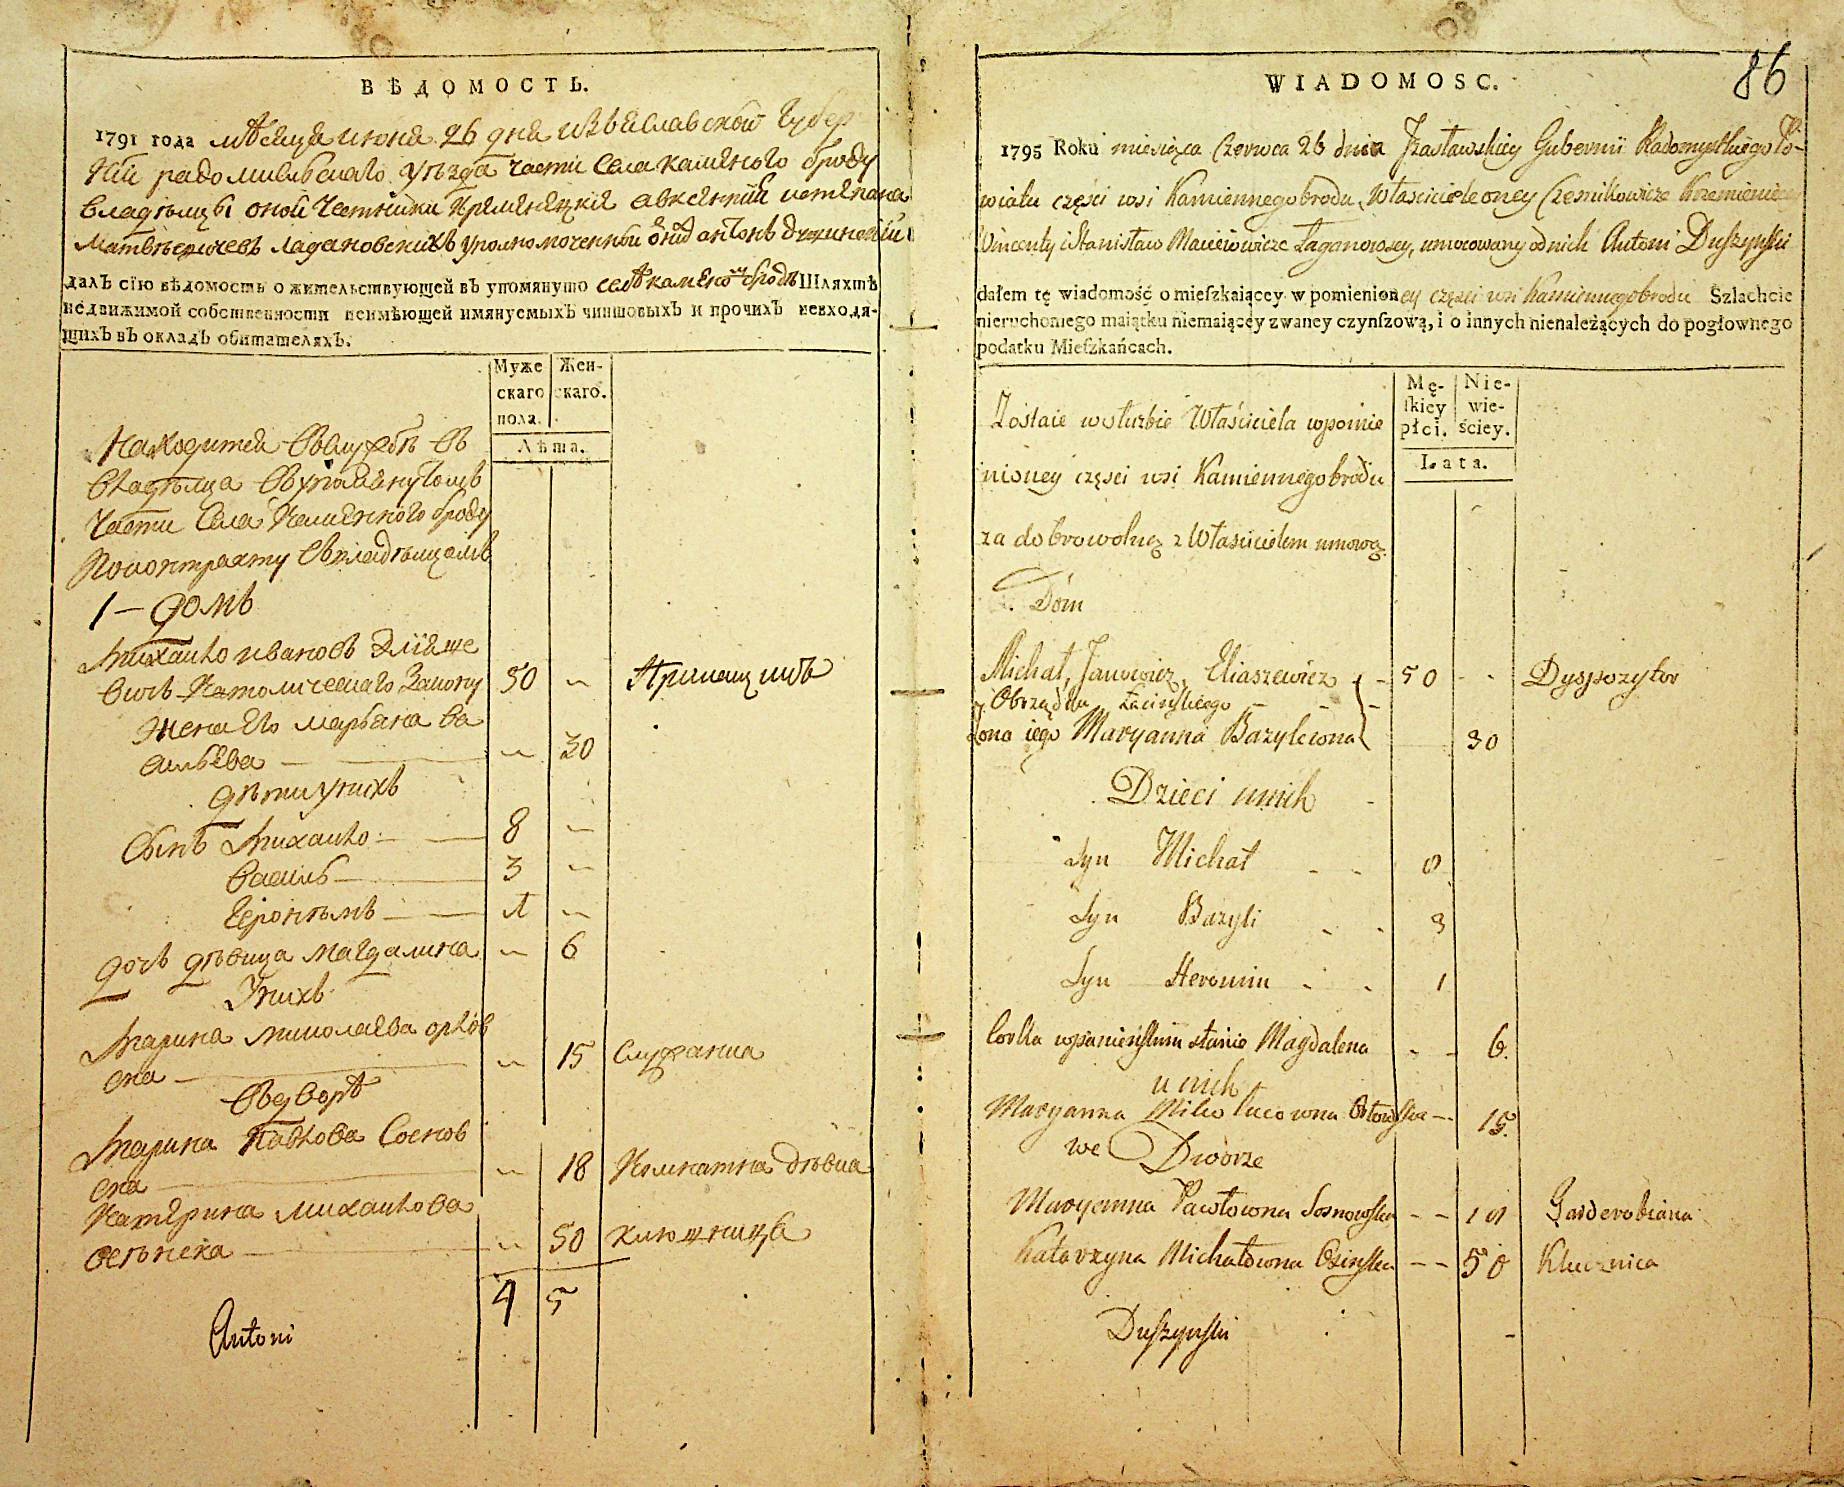 ВѢДОМОСТЬ.
1791 года мѣсяца июня 26 дня изъяславской Губер
нїи радомисльскаго уѣзда части села каменьго броду
владѣльцы оной Чесники кременецкие
Матвѣевичевъ уполномоченный антонъ
далъ сїю вѣдомость о жительствующей въ упомянуто селѣ Шляхтѣ
недвижимой собственности неимѣющей имянуемыхъ чиншовыхъ и прочихъ невходя-
щихъ въ окладъ обитателяхъ.
Муже Жен-
скаго скаго.
пола.
Лѣта.
Находится въ службѣ въ
владѣльца в упомянутомъ
части села Каменного броду
по контракту съ владѣльцемъ
1 — домъ
Михайло ивановъ Элияше
вичъ католического Закону 50 —
жена его марьяна ва
сильева — — 30
дѣти у нихъ
сынъ Михайло — 8 —
василь — 3 —
Геронимъ — 1 —
дочь дѣвица магдалина — 6
У нихъ
Марина миколаева орлов
ска — — 15 служанка
въ дворѣ
Марина павлова Соснов
ска — — 18 Комнатна дѣвка
катерина михайлова
осѣнска — — 50 ключница
4 5
Antoni
86
WIADOMOSC.
1795 Roku miesiąca Czerwca 26 dnia Jzasławskiey Gubernii Radomyślskiego Po-
wiatu części wsi Kamiennegobrodu, Właściciele oney Czesnikowicze Krzemienieccy
Wincenty i Stanisław Maciejowicze umocowany od nich Antoni Duszyński
dałem tę wiadomość o mieſzkaiącey w pomienioney części wsi Kamiennegobrodu Szlachcie
nieruchomego maiątku niemaiącey zwaney czynſzową, i o innych nienależących do pogłownego
podatku Mieſzkańcach.
Mę- Nie-
ſkiey wie-
płci. ściey.
Lata.
Zostaie w służbie Właściciela wpomie
nioney części wsi Kamiennegobrodu
za dobrowolną z Właścicielem umową.
1. Dóm
Michał, Janowicz, Eliaszewicz - - 50 - - Dyspozytor
Obrządku Łacińskiego
Zona iego Maryanna Bazylewna 30
Dzieci u nich
Syn Michał - - 8
Syn Bazyli - - 3
Syn Heronim - - 1
Corka w panieńskim stanie Magdalena - - 6.
u nich
Maryanna Mikołucowna Orłowska - - 15.
we Dworze
Maryanna Pawłowna Sosnowska - - 18 Garderobiana
Katarzyna Michałowna Osińska - - 50 Klucznica
Duszyński